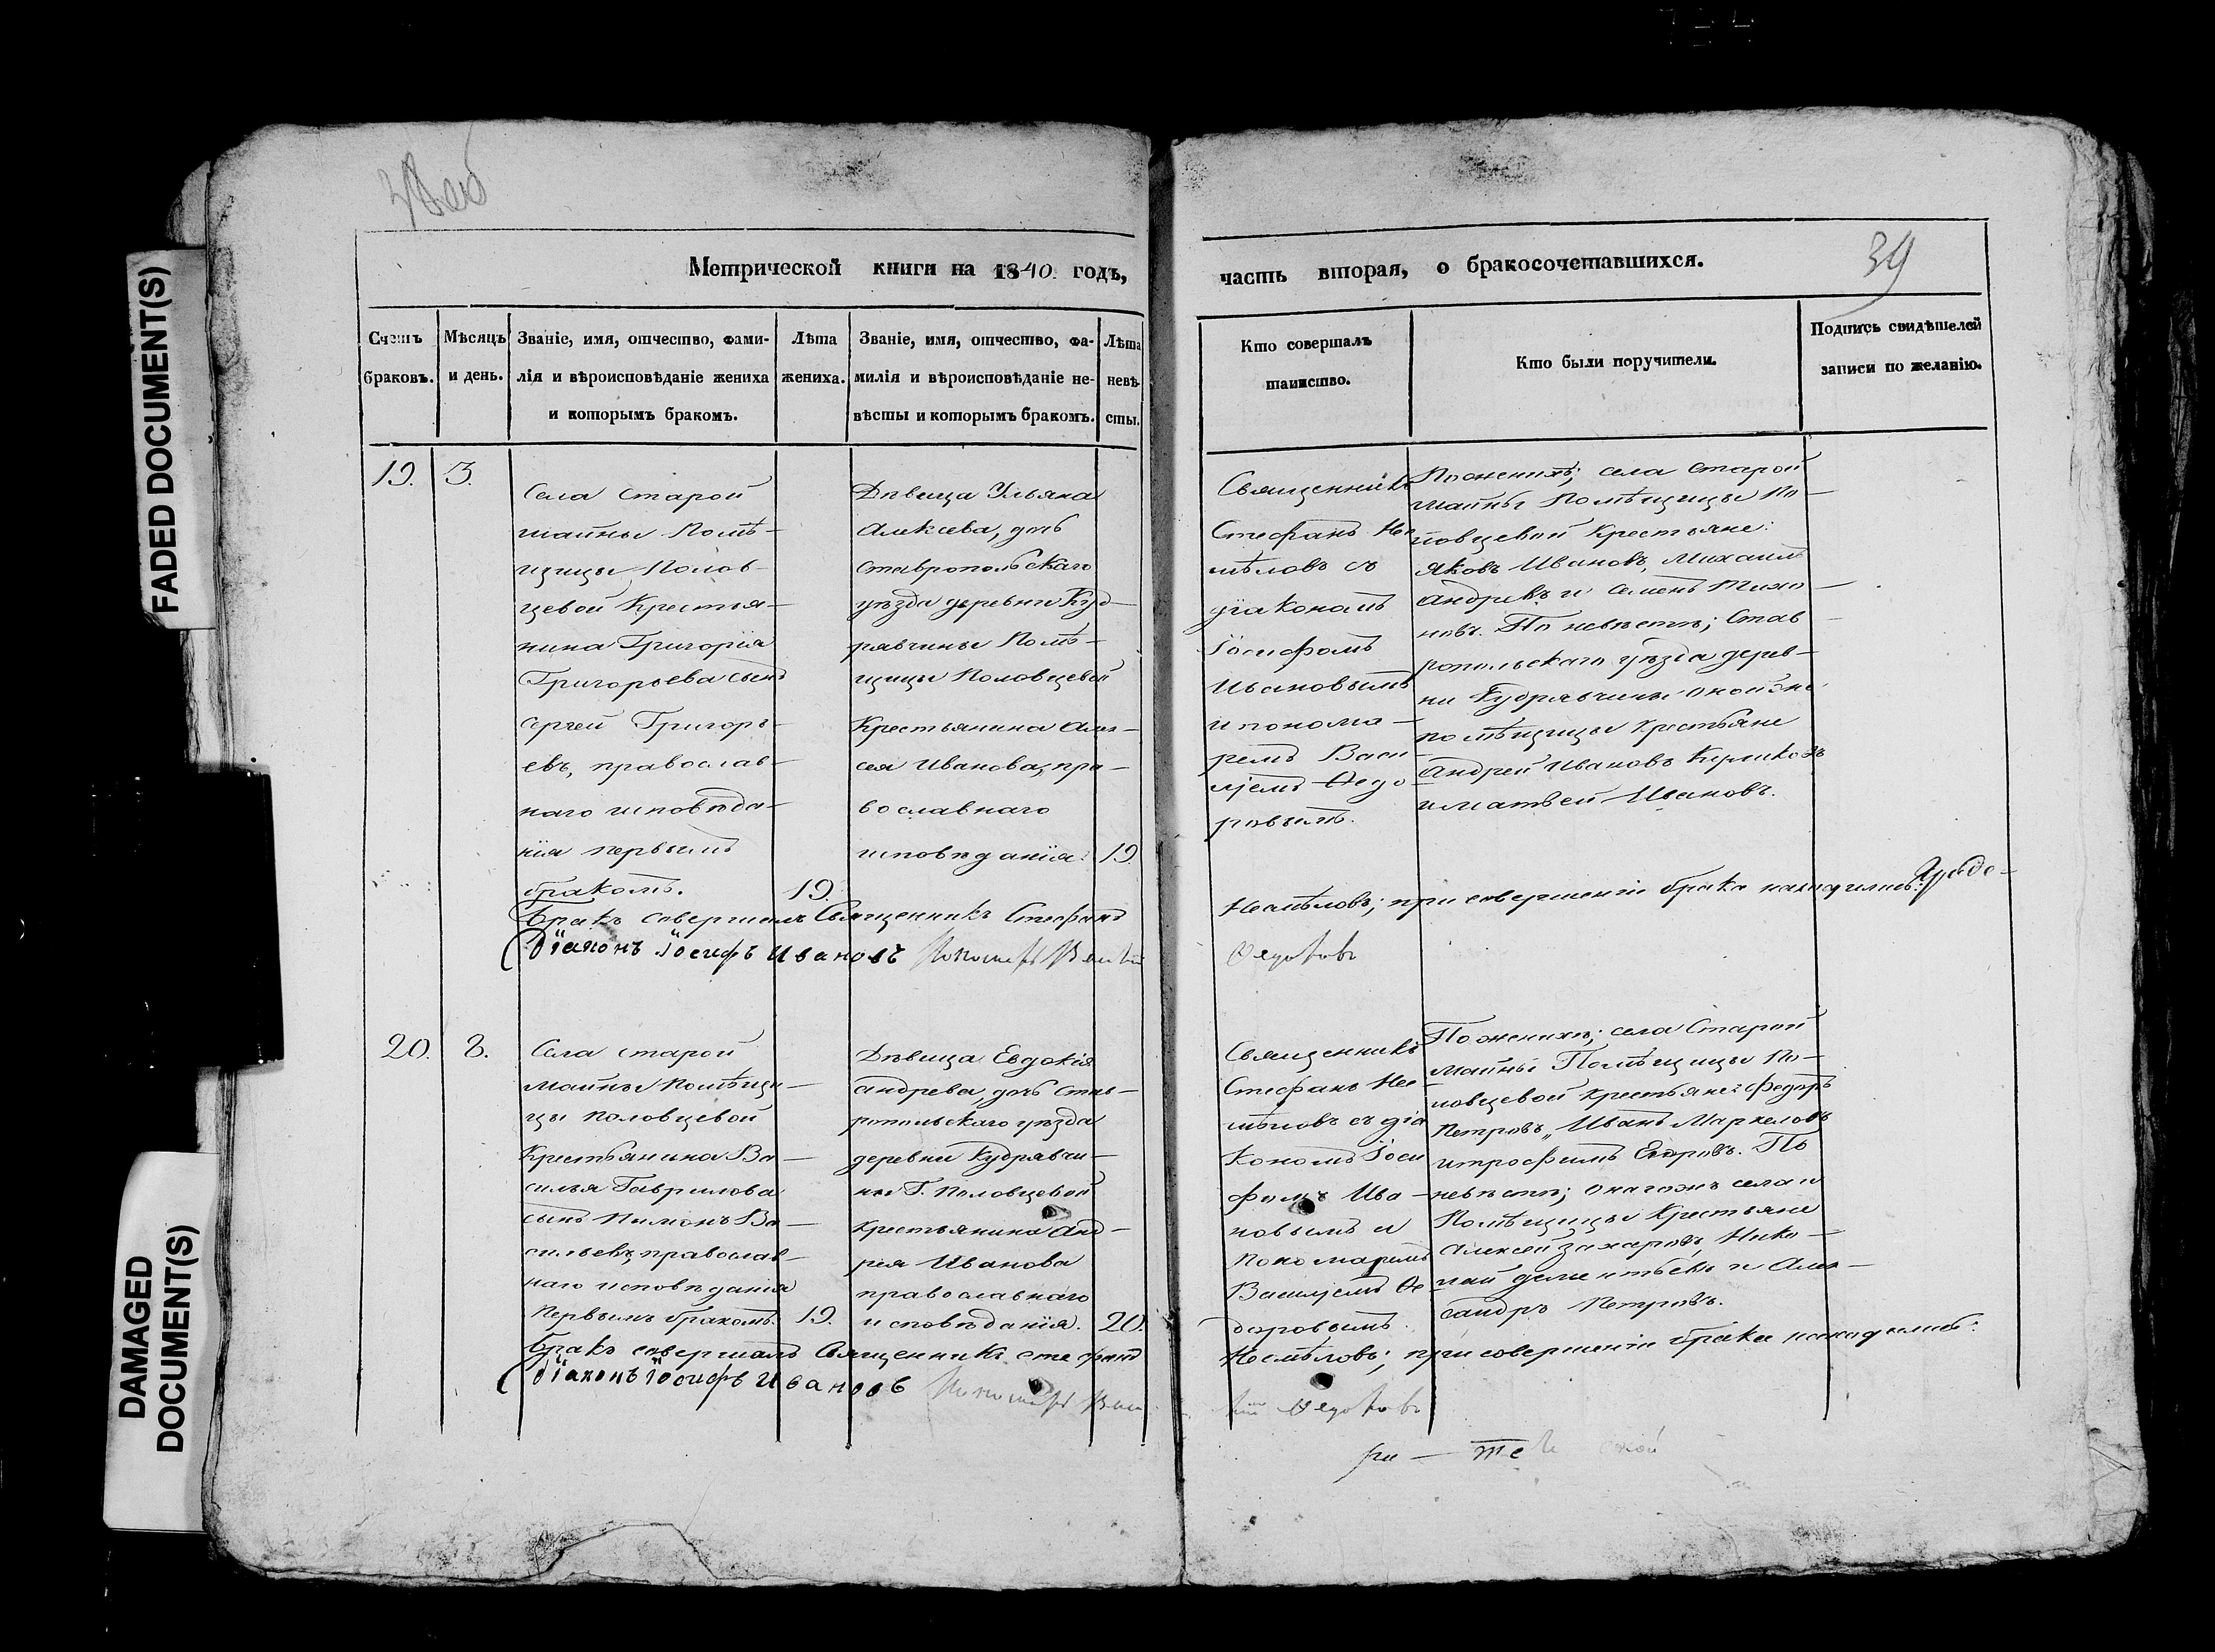 39
Метрической книги на 1840. годъ,
часть вторая, о бракосочетавшихся.
Счетъ браковъ.
Мѣсяцъ и день.
Званіе, имя, отчество, фами-
лія и вѣроисповѣданіе жениха
и которымъ бракомъ.
Лѣта
жениха.
Званіе, имя, отчество, фа-
милія и вѣроисповѣданіе не-
вѣсты и которымъ бракомъ.
Лѣта
невѣ-
сты.
Кто совершалъ
таинство.
Кто были поручители.
Подпись свидѣтелей
записи по желанію.
19.
3.
Села Старой
Майны Помѣ-
щицы Полов-
цевой Крестья-
нина Григорія
Григорьева сынъ
Сергей Григорь-
евъ, православ-
наго исповѣда-
нія первымъ
бракомъ.
19.
Дѣвица Ульяна
Алексѣева, дчь
Ставропольскаго
уѣзда деревни Куд-
рявчины Помѣ-
щицы Половцевой
Крестьянина Алек-
сея Иванова, пра-
вославнаго
исповѣданія.
19.
Священникъ
Стефанъ Нес-
мѣловъ съ
діакономъ
Іосифомъ
Ивановымъ
и понома-
ремъ Васи-
ліемъ Ѳедо-
ровымъ.
По женихѣ; села Старой
Майны Помѣщицы По-
ловцевой Крестьяне:
Яковъ Ивановъ, Михаилъ
Андреевъ и Семенъ Тихо-
новъ. По невѣстѣ; Став-
ропольскаго уѣзда дерев-
ни Кудрявчины оной же
помѣщицы Крестьяне
Андрей Ивановъ
и Матвей Ивановъ.
Бракъ совершалъ Священникъ Стефанъ Несмѣловъ; при совершеніи брака находились:
Діаконъ Іосифъ Ивановъ Пономарь Василій Ѳедоровъ
20.
8.
Села Старой
Майны Помѣщи-
цы Половцевой
Крестьянина Ва-
силья Гаврилова
сынъ Пимонъ Ва-
сильевъ, православ-
наго исповѣданія
первымъ бракомъ.
19.
Дѣвица Евдокія
Андрева, дчь Став-
ропольскаго уѣзда
деревни Кудрявчи-
ны Г. Половцевой
Крестьянина Анд-
рея Иванова
православнаго
исповѣданія.
20.
Священникъ
Стефанъ Нес-
мѣловъ съ діа-
кономъ Іоси-
фомъ Ива-
новымъ и
Пономаремъ
Василіемъ Ѳе-
доровымъ.
По женихѣ; села Старой
Майны Помѣщицы По-
ловцевой Крестьяне: Федоръ
Петровъ, Иванъ Маркеловъ
и Трофимъ Егоровъ. По
невѣстѣ; онагожъ села и
Помѣщицы Крестьяне
Алексей Захаровъ, Нико-
лай Дементьевъ и Алек-
сандръ Петровъ.
Бракъ совершалъ Священникъ Стефанъ Несмѣловъ; при совершеніи брака находились:
Діаконъ Іосифъ Ивановъ Пономарь Василій Ѳедоровъ